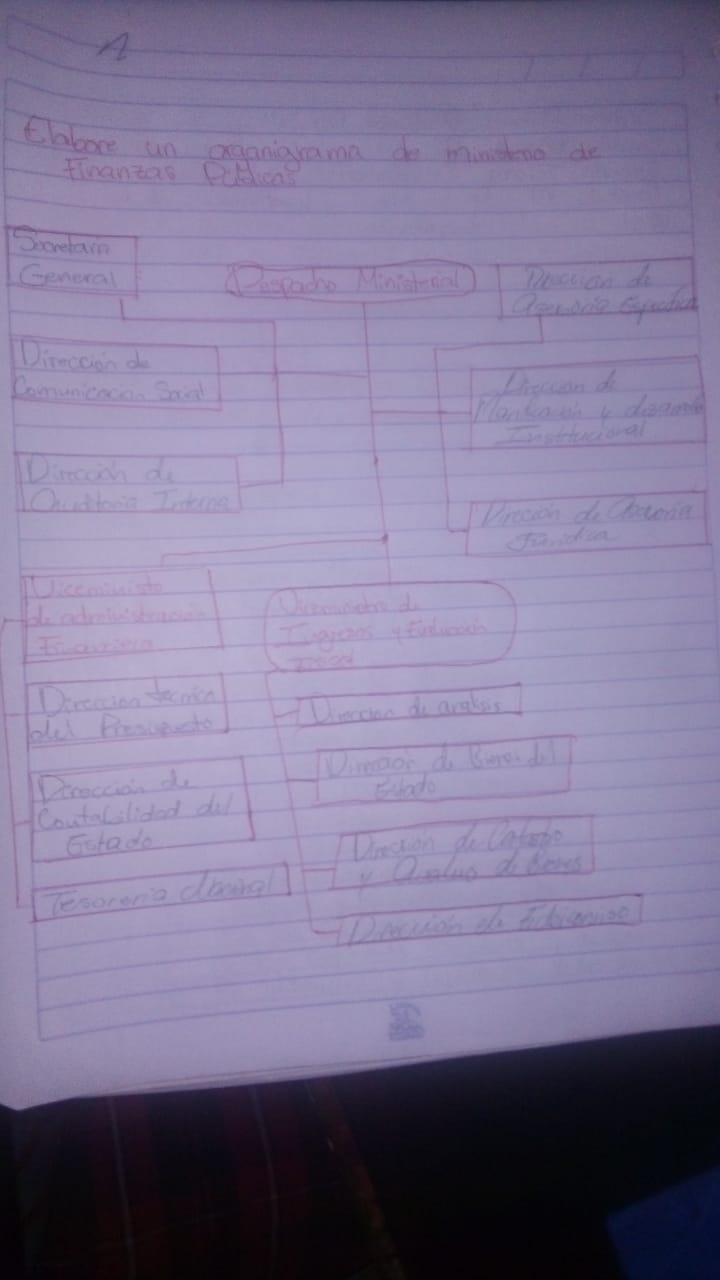 Elabore un organigrama de ministerio de
Finanzas Públicas
Secretaria
General
Despacho Ministerial
Dirección de
Asesoria Especifica
Dirección de
Comunicación Social
Dirección de
Planificación y desarrollo
Institucional
Dirección de
Auditoria Interna
Dirección de Asesoria
Juridica
Viceministo
de administración
Financiera
Viceministro de
Ingresos y Evaluación
Fiscal
Dirección tecnica
del Presupuesto
Dirección de analisis
Dirección de Bienes del
Estado
Dirección de
Contabilidad del
Estado
Dirección de Catastro
y Avaluo de Bienes
Tesoreria
Dirección de